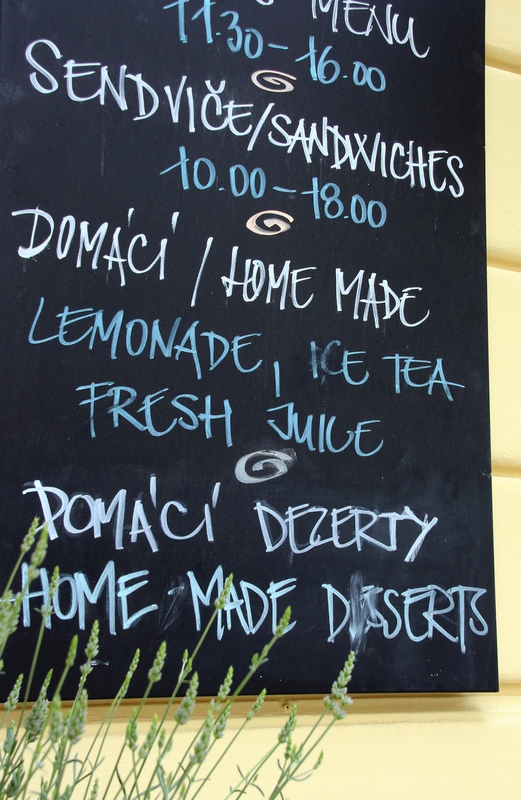 MENU
11.30-16.00
SENDVIČE/SANDWICHES
10.00-18.00
DOMÁCÍ / HOME MADE
LEMONADE, ICE TEA
FRESH JUICE
DOMÁCÍ DEZERTY
HOME MADE DESSERTS